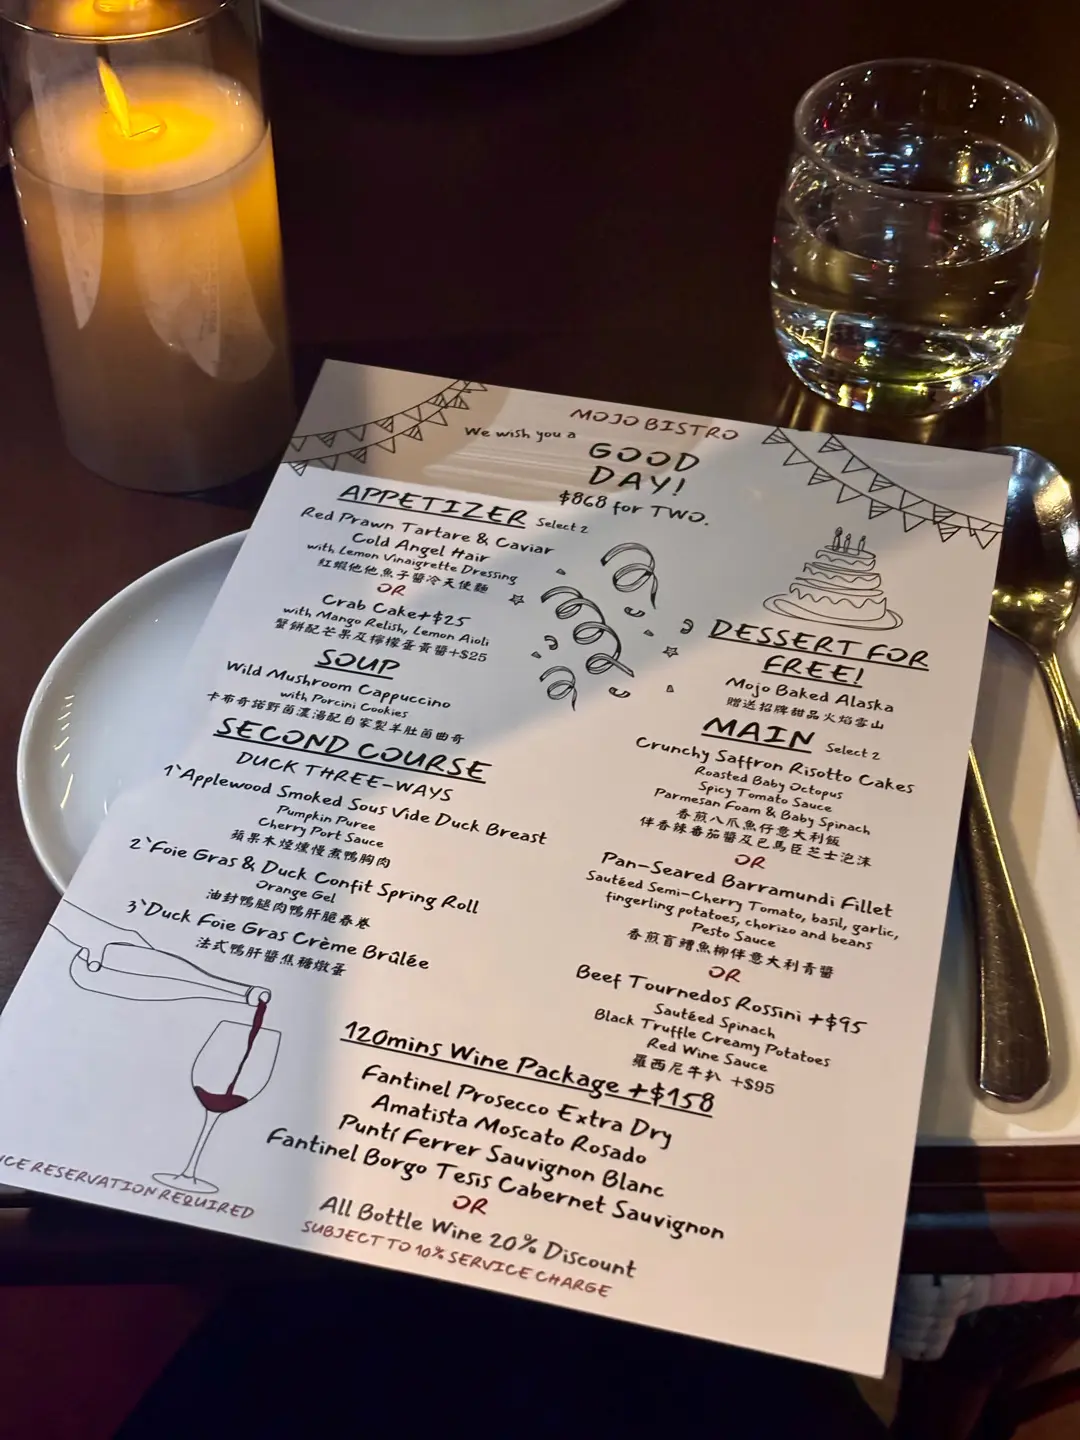 MOJO BISTRO
We wish you a
GOOD
DAY!
$868 for TWO.
APPETIZER Select 2
Red Prawn Tartare & Caviar
Cold Angel Hair
with Lemon Vinaigrette Dressing
紅蝦他他魚子醬冷天使麵
OR
Crab Cake+$25
with Mango Relish, Lemon Aioli
蟹餅配芒果及檸檬蛋黃醬+$25
SOUP
Wild Mushroom Cappuccino
with Porcini Cookies
卡布奇諾野菌濃湯配自家製羊肚菌曲奇
SECOND COURSE
DUCK THREE-WAYS
1`Applewood Smoked Sous Vide Duck Breast
Pumpkin Puree
Cherry Port Sauce
蘋果木煙燻慢煮鴨胸肉
2`Foie Gras & Duck Confit Spring Roll
Orange Gel
油封鴨腿肉鴨肝脆春卷
3`Duck Foie Gras Crème Brûlée
法式鴨肝醬焦糖燉蛋
DESSERT FOR
FREE!
Mojo Baked Alaska
贈送招牌甜品火焰雪山
MAIN Select 2
Crunchy Saffron Risotto Cakes
Roasted Baby Octopus
Spicy Tomato Sauce
Parmesan Foam & Baby Spinach
香煎八爪魚仔意大利飯
伴香辣番茄醬及巴馬臣芝士泡沫
OR
Pan-Seared Barramundi Fillet
Sautéed Semi-Cherry Tomato, basil, garlic,
fingerling potatoes, chorizo and beans
Pesto Sauce
香煎盲鰽魚柳伴意大利青醬
OR
Beef Tournedos Rossini +$95
Sautéed Spinach
Black Truffle Creamy Potatoes
Red Wine Sauce
羅西尼牛扒 +$95
120mins Wine Package +$158
Fantinel Prosecco Extra Dry
Amatista Moscato Rosado
Puntí Ferrer Sauvignon Blanc
Fantinel Borgo Tesis Cabernet Sauvignon
OR
All Bottle Wine 20% Discount
SUBJECT TO 10% SERVICE CHARGE
RESERVATION REQUIRED